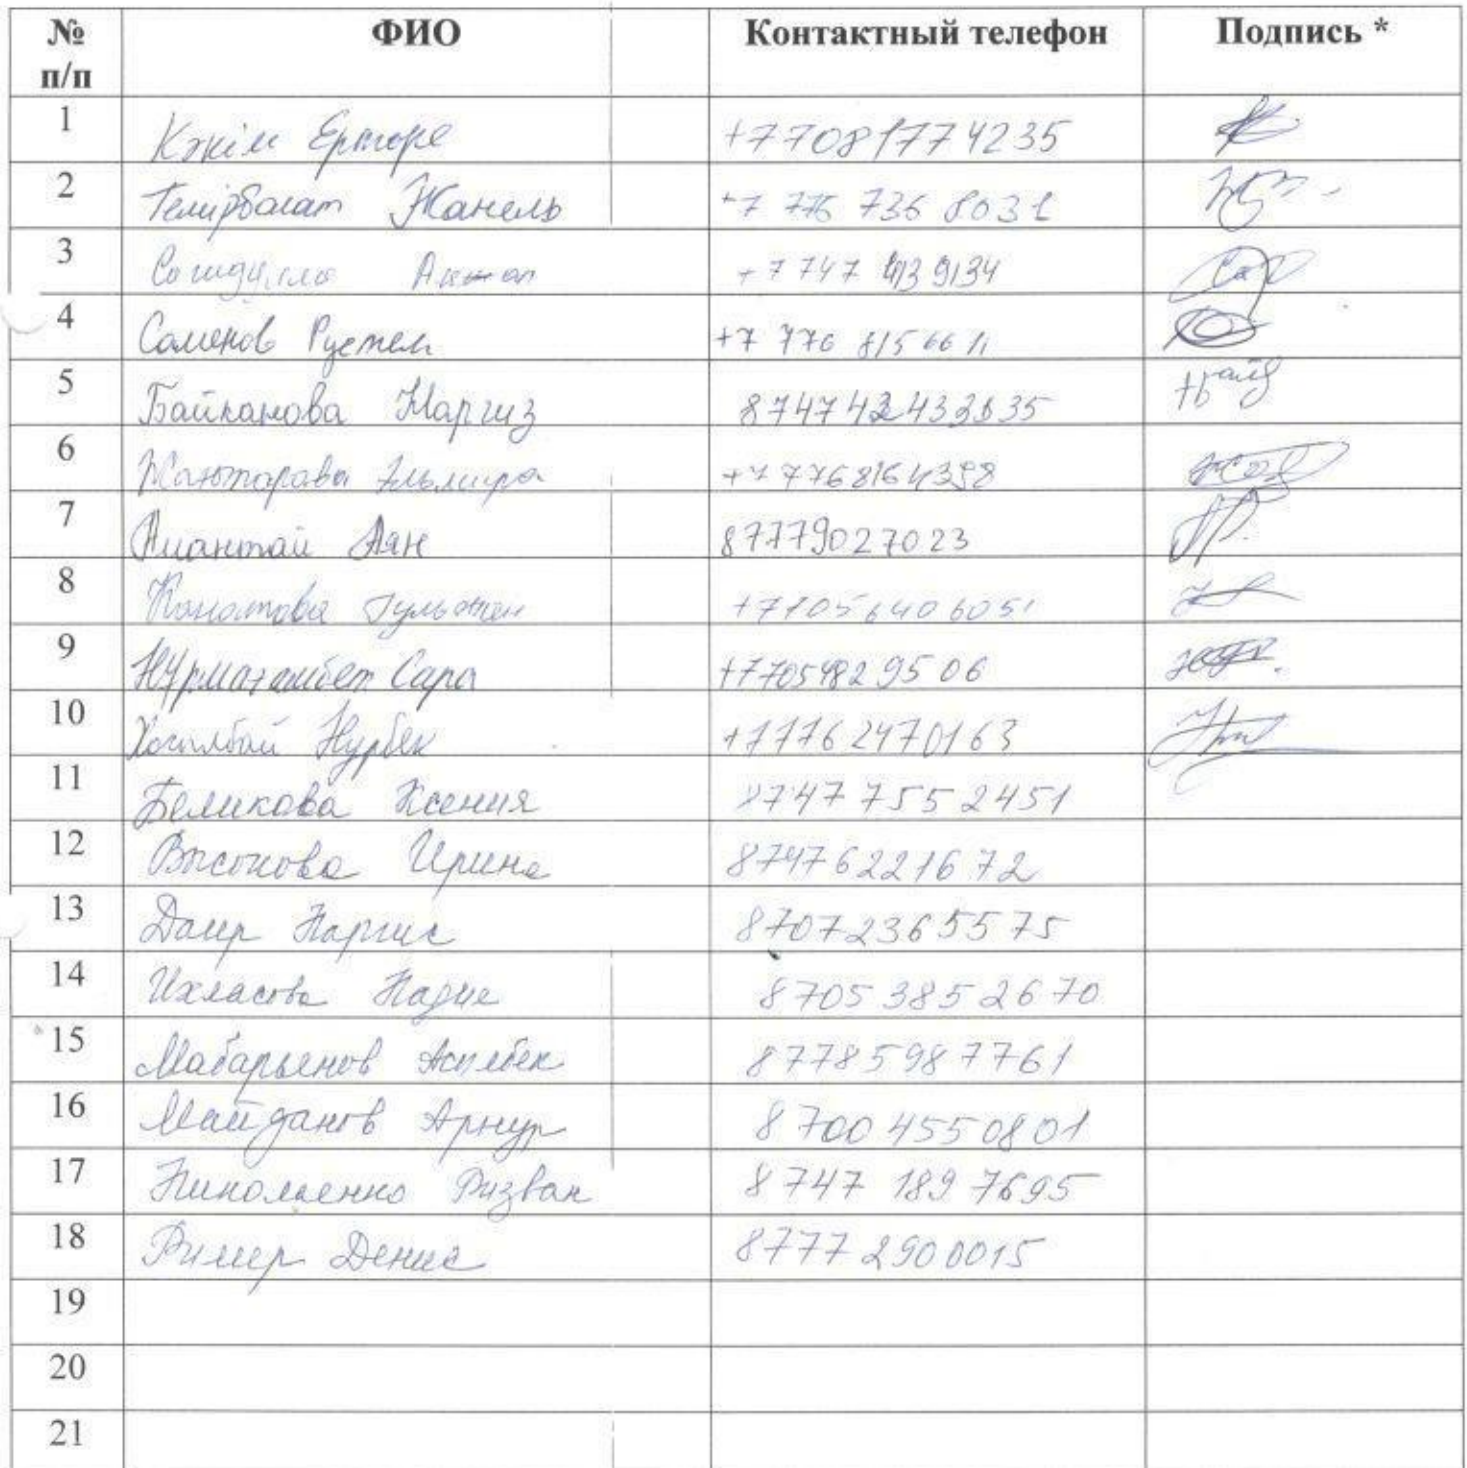 № п/п ФИО Контактный телефон Подпись *
1 Кәкім +77081774235
2 Темірболат Жанель +7 776 736 8031
3 +7 747
4 Саменов Рустем +7 776 815 66 11
5 Байканова Наргиз
6 Жанторава Эльмира
7 Аиантай Аян 87779027023
8 Канатова Гульжан
9 Нурмагамбет Сара +77054829506
10 Нурбек +77762470163
11 Беликова Ксения 87477552451
12 Высокова Ирина 87476221672
13 Даир Наргис 87072365575
14 Ихласова Надие 87053852670
15 Мабарьянов Асылбек 87785987761
16 Майданов Арнур 8700 455 0801
17 Ризван 8747 189 7695
18 Ример Денис 8777 2900015
19
20
21